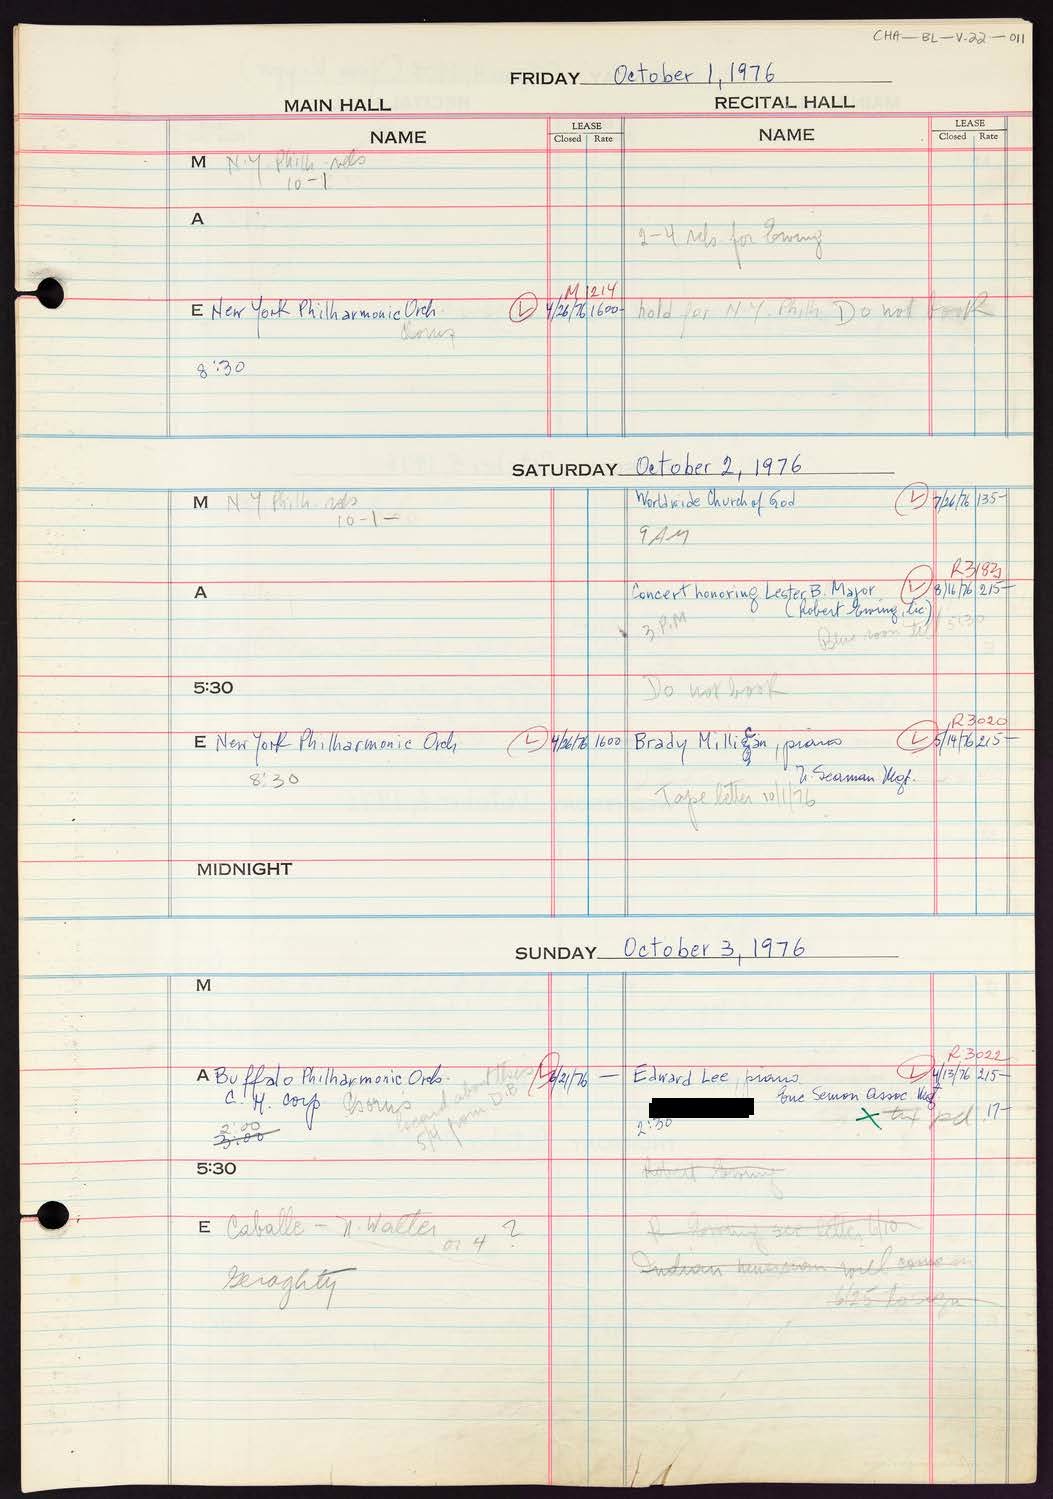 CHA-BL-V-22-011
FRIDAY October 1, 1976
MAIN HALL
RECITAL HALL
NAME
LEASE
Closed Rate
NAME
LEASE
Closed Rate
M N.Y. Philh. rehs
10-1
A
2-4 rehs. for Ewing
M 1214
E New York Philharmonic Orch. L 4/26/76 1600-
hold for N.Y. Philh. Do not book
Chorus
8:30
SATURDAY October 2, 1976
M N.Y Philh. rehs
10-1-
Worldwide Church of God L 7/26/76 135-
9 AM
R3183
A
Concert honoring Lester B. Major L 8/16/76 215-
(Robert Ewing, lic)
3 P.M
Blue room til 5:30
5:30
Do not book
R3020
E New York Philharmonic Orch L 4/26/76 1600
Brady Milligan, piano L 5/14/76 215-
8:30
N. Seaman Mgt.
Tape letter 10/1/76
MIDNIGHT
SUNDAY October 3, 1976
M
R3022
A Buffalo Philharmonic Orch. L 6/21/76 -
Edward Lee, piano L 4/13/76 215-
C. H. Corp Chorus
Eric Semon Assoc Mgt.
about this
from D.B.
2:00
3:00
2:30
X txt pd 17-
5:30
Robert Ewing
E Caballe - N. Walter ?
or 4
R Ewing see letter 6/10
Geraghty
Indian musician will come in
6/25 to sign